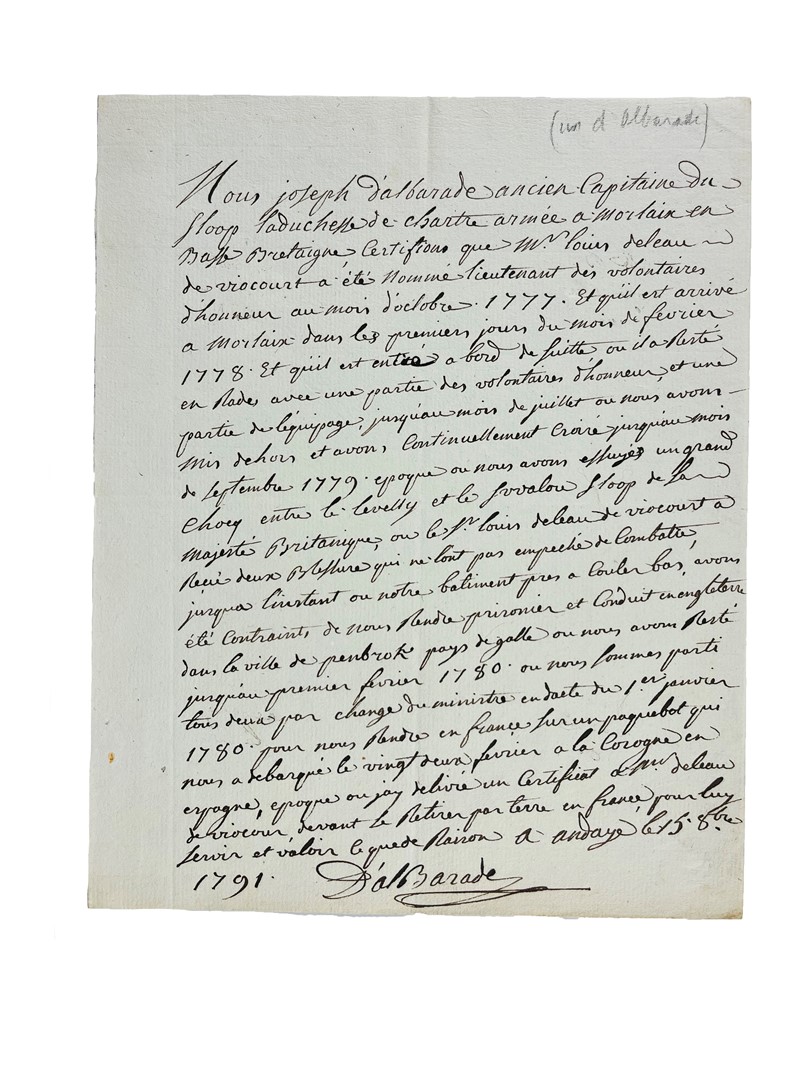 d Albarade)
Nous joseph D'albarade ancien Capitaine du
sloop laduchesse de chartre armée a morlaix en
Basse Bretaigne, Certifions que Mr. louis deleau
de viocourt a été Nommé lieutenant des volontaires
d'honneur au mois d'octobre 1777. Et qu'il est arrivé
a Morlaix dans les premiers jours du mois de fevrier
1778. Et qu'il est entré a bord de suitte, ou il a Resté
en Rades avec une partie des volontaires d'honneur, et une
partie de l'équipage, jusqu'au mois de juillet ou nous avons
mis dehors et avons Continuellement Croiré jusqu'au mois
de septembre 1779. epoque ou nous avons essuyés un grand
Chocq entre le levelly et le sloop de sa
Majesté Britanique, ou le Sr. louis deleau de viocourt a
Reçu deux Blessure qui ne l'ont pas empeché de Combattre
jusqua l'instant ou notre batiment pres a Couler bas, avons
été Contraints de nous Rendre prisonier et Conduit en angleterre
dans la ville de penbrok pays de galle ou nous avons Resté
jusqu'au premier fevrier 1780. ou nous sommes parti
tous deux par change du ministre en dacte du 1er. janvier
1780. pour nous Rendre en france sur un paquebot qui
nous a debarqué le vingt deux fevrier a la Corogne en
espagne, epoque ou jay delivré un Certificat a Mr. deleau
de viocour, devant se Retirer par terre en france, pour luy
servir et valoir ce que de Raison A andaye le 15. 8bre
1791. D'alBarade